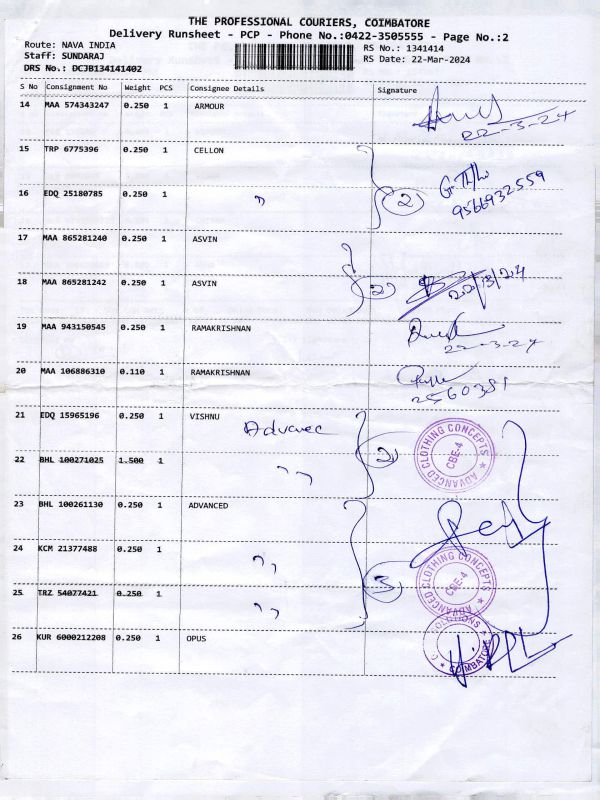 THE PROFESSIONAL COURIERS, COIMBATORE
Delivery Runsheet - PCP - Phone No.:0422-3505555 - Page No.:2
Route: NAVA INDIA
RS No.: 1341414
Staff: SUNDARAJ
RS Date: 22-Mar-2024
DRS No.: DCJB134141402
S No Consignment No Weight PCS Consignee Details Signature
14 MAA 574343247 0.250 1 ARMOUR
22-3-24
15 TRP 6775396 0.250 1 CELLON
16 EDQ 25180785 0.250 1 " 2
9566932559
17 MAA 865281240 0.250 1 ASVIN
18 MAA 865281242 0.250 1 ASVIN 2 22/3/24
19 MAA 943150545 0.250 1 RAMAKRISHNAN
22-3-24
20 MAA 106886310 0.110 1 RAMAKRISHNAN
2560351
21 EDQ 15965196 0.250 1 VISHNU Advanec
22 BHL 100271025 1.500 1 " 2
ADVANCED CLOTHING CONCEPTS CBE-4
23 BHL 100261130 0.250 1 ADVANCED
24 KCM 21377488 0.250 1 "
25 TRZ 54077421 0.250 1 " 3
ADVANCED CLOTHING CONCEPTS CBE-4
26 KUR 6000212208 0.250 1 OPUS
SOLUTIONS COIMBATORE